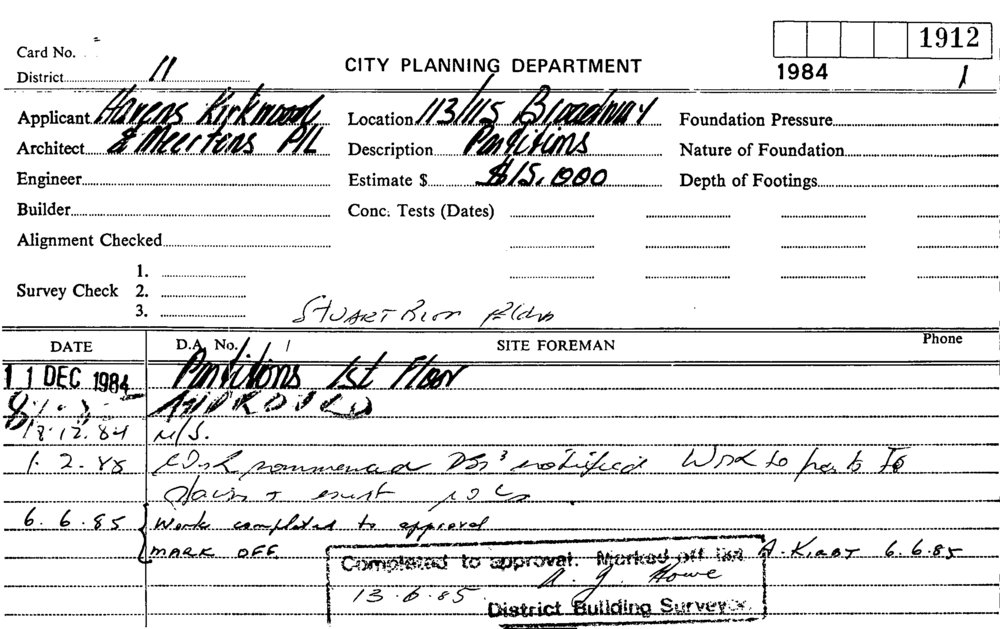 1912
Card No.
District 11
CITY PLANNING DEPARTMENT
1984 1
Applicant Havens Kirkwood Location 113/115 Broadway Foundation Pressure
Architect & Meertens P/L Description Partitions Nature of Foundation
Engineer Estimate $ $15,000 Depth of Footings
Builder Conc. Tests (Dates)
Alignment Checked
1.
Survey Check 2.
3.
STUART Bldg
DATE D.A. No. / SITE FOREMAN Phone
11 DEC 1984 Partitions 1st Floor
APPROVED
18.12.84 N/S.
1.2.85 Work commenced notified Work to
6.6.85 Work completed to approval
MARK OFF A. KIRBY 6.6.85
Completed to approval. Marked off list
13.6.85 A. J. Howe
District Building Surveyor.